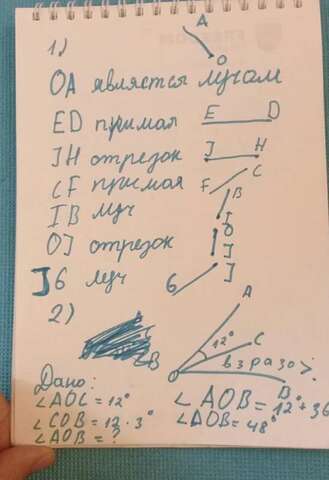 1)
A
O
OA является лучом
ED прямая E D
JH отрезок J H
CF прямая F C
IB луч B I
OJ отрезок O J
JG луч G J
2)
A
12° C
O в 3 раза >
B
Дано:
∠AOC = 12°
∠COB = 12·3°
∠AOB = ?
∠AOB = 12° + 36
∠AOB = 48°